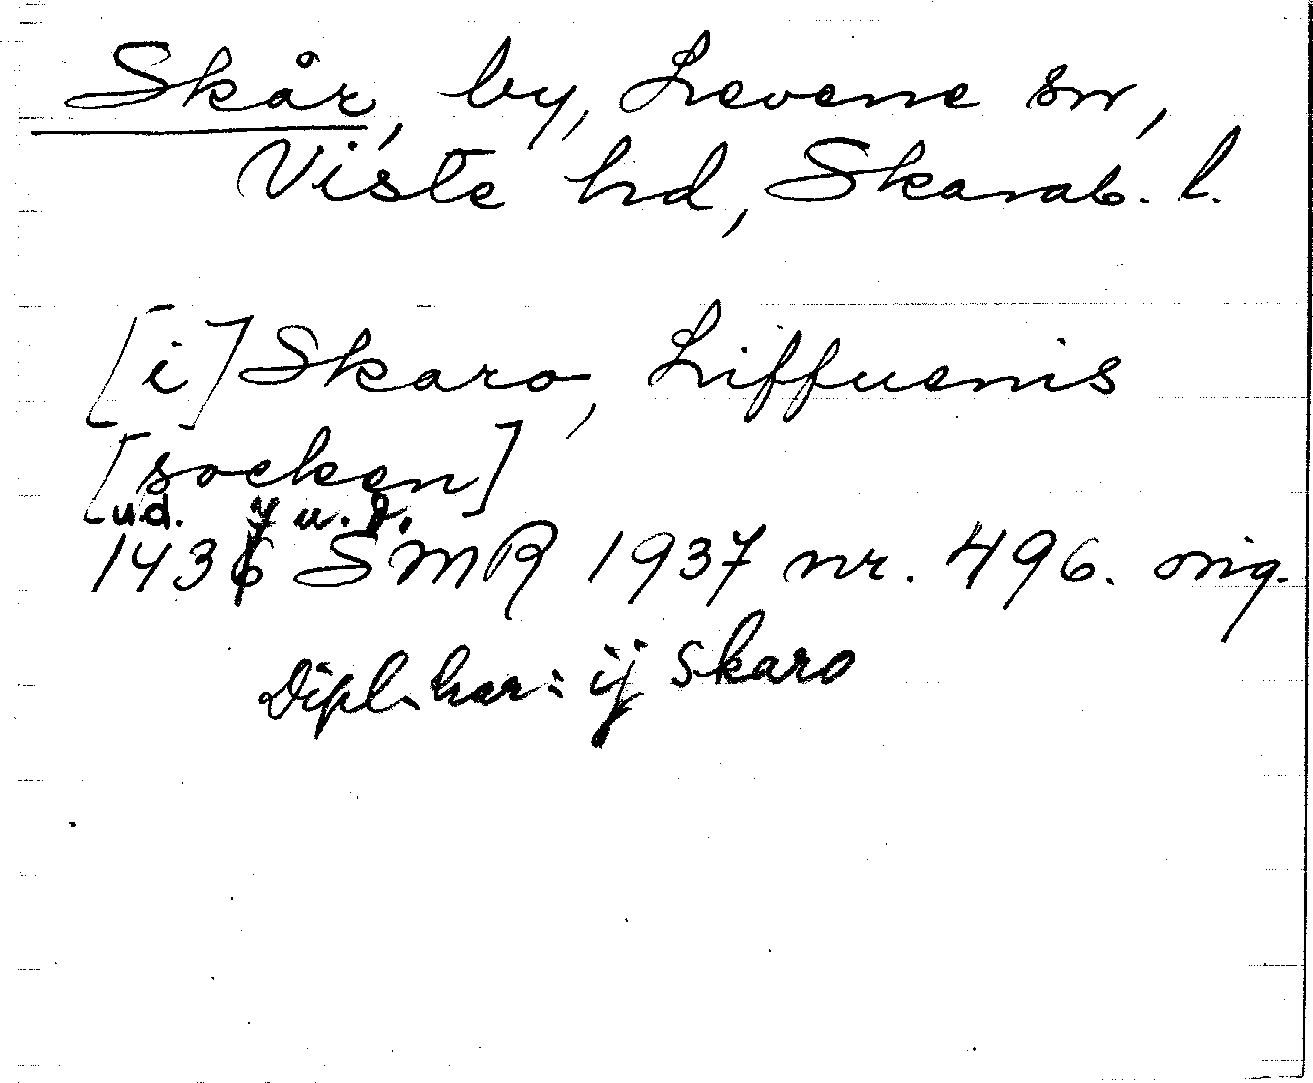 Skår, by, Levene sn,
Viste hd, Skarab. l.
[i] Skaro, Liffuenis
[socken]
u.d. y u.f.
1436 SMR 1937 nr. 496. orig.
Dipl. har: ij Skaro